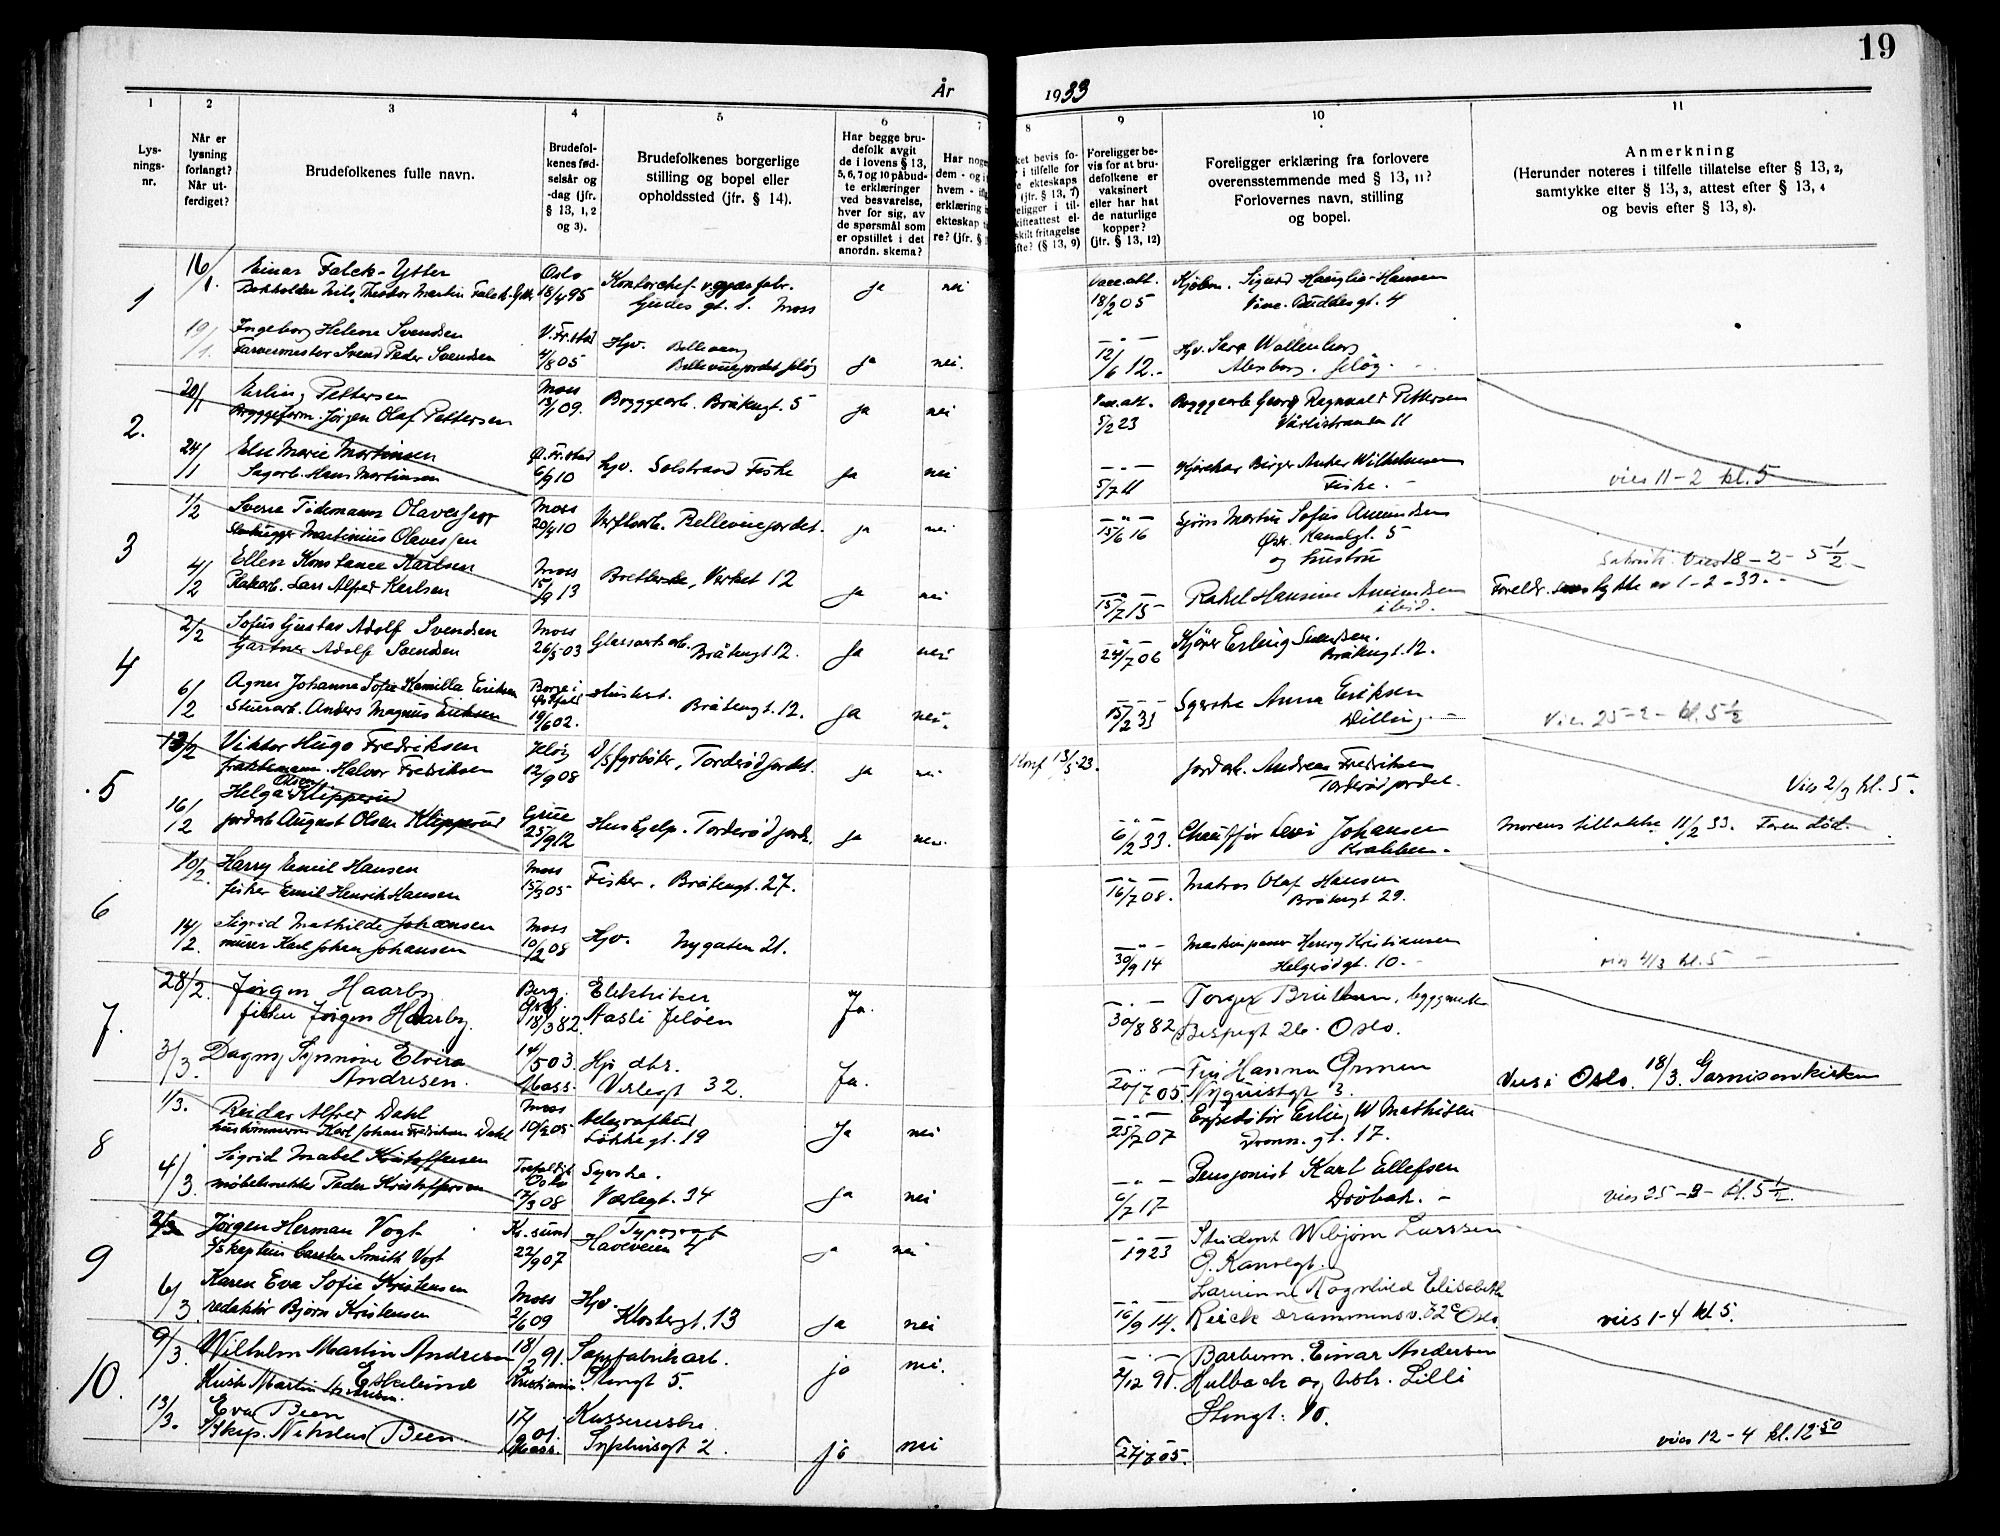 19
År 1933
1 2 3 4 5 6 7 8 9 10 11
Lys-
nings-
nr.
Når er
lysning
forlangt?
Når ut-
ferdiget?
Brudefolkenes fulle navn.
Brudefol-
kenes fød-
selsår og
-dag (jfr.
§ 13, 1, 2
og 3).
Brudefolkenes borgerlige
stilling og bopel eller
opholdssted (jfr. § 14).
Har begge bru-
defolk avgit
de i lovens § 13,
5, 6, 7 og 10 påbud-
te erklæringer
ved besvarelse,
hver for sig, av
de spørsmål som
er opstillet i det
anordn. skema?
Har noge
dem - og i
hvem - if
erklæring
ekteskap
re? (jfr. §
ket bevis fo-
i tilfelle for
e ekteskaps
(jfr. § 13, 7)
eligger i til-
skifteattest el-
skilt fritagelse
ifte? (§ 13, 9)
Foreligger be-
vis for at bru-
defolkene er
vaksinert
eller har hat
de naturlige
kopper?
(jfr. § 13, 12)
Foreligger erklæring fra forlovere
overensstemmende med § 13, 11?
Forlovernes navn, stilling
og bopel.
Anmerkning
(Herunder noteres i tilfelle tillatelse efter § 13, 2,
samtykke efter § 13, 3, attest efter § 13, 4
og bevis efter § 13, 8).
1 16/1 Einar Falck-Ytter Oslo 18/4 95 Kontorchef v. papirfabr. ja nei Vacc.att. 18/2 05 Kjøbm. Sigurd Hauglie-Hansen
Bokholder Nils Theodor Martin Falck-Ytter Gudes gt. 1. Moss Vinc. Buddesgt. 4
19/1 Ingeborg Helene Svendsen V. Fr.stad 4/8 05 Hjv. Bellevue ja nei. 12/6 12. Hjv. Sara Wollenborg
Farvermester Svend Peder Svendsen Bellevuejordet Jeløy Jeløy.
2. 20/1 Erling Pettersen Moss 13/1 09. Bryggearb. Bråtengt. 5 ja nei Vac.att. 5/2 23 Bryggearb Georg Ragnvald Pettersen
Bryggeform. Jørgen Olaf Pettersen Vårlistranden 11
24/1 Else Marie Martinsen Ø. Fr.stad 6/9 10 Hjv. Solstrand Fiske ja nei 5/7 11 Birger Anker Wilhelmsen
Sagarb. Hans Martinsen Fiske. vies 11-2 kl. 5
3 1/2 Sverre Tidemann Olavessen Moss 20/4 10 Verftsarb. Bellevuejordet. ja nei 15/6 16 Martin Sofus Amundsen
Stenhugger Martinius Olavessen Kanalgt. 5
og hustru
4/2 Ellen Konstance Karlsen Moss 15/9 13 Verket 12 ja nei 15/7 15 Rakel Hansine Amundsen Vies 18-2-5 1/2
Lars Alfred Karlsen ibid. Foreldr. samtykke av 1-2-33.
4 2/2 Sofus Gustav Adolf Svendsen Moss 26/5 03 Glassarb. Bråtengt 12. ja nei 24/7 06 Kjører Erling Svendsen.
Gartner Adolf Svendsen Bråtengt. 12.
6/2 Agnes Johanna Sofie Kamilla Eriksen Borge i Østfold 19/6 02. Hushest. Bråtengt. 12. ja nei. 15/2 31 Syerske Anna Eriksen
Stuerarb. Anders Magnus Eriksen Dilling. Vies 25-2- kl. 5 1/2
5 13/2 Viktor Hugo Fredriksen Jeløy 12/9 08 D/S fyrbøter, Torderødjordet. ja nei Konf 13/5 23. Jordarb. Andreas Fredriksen
Halvor Fredriksen Torderødjordet. Vies 2/3 kl. 5.
16/2 Helga Olsen Klipperud Grue 25/9 12 Hushjelp. Torderødjordet ja nei. 6/2 33. Chauffør Levi Johansen
Jordarb August Olsen Klipperud Krabben. Morens tillatelse 11/2 33. Faren død.
6 10/2. Harry Emil Hansen Moss 15/3 05 Fisker. Bråtengt. 27. 16/7 08. Matros Olaf Hansen
fisker Emil Henrik Hansen Bråtengt 29.
14/2. Sigrid Mathilde Johansen Moss 10/2 08 Hjv. Nygaten 21. 30/9 14 Maskinpasser Henry Kristiansen
murer Karl Johan Johansen Helgerødgt. 10. vies 4/3 kl. 5
7. 28/2. Jørgen Haarby Berg. Østf. 18/3 82. Elektriker Ja. 30/8 82 Torger
fisker Jørgen Haarby. Jeløen Bispegt 26. Oslo.
3/3. Dagny Synnøve Elvira 14/5 03 Moss. Hjv. Ja. 20/7 05 Frk Hanna
Andresen. Verlegt 32. Nyquistgt 13. Vies i Oslo. 18/3. Garnisonkirken
8 1/3. Reidar Alfred Dahl Moss 10/2 05 Telegrafbud ja nei 25/7 07 Expeditør Erling W Mathisen
Karl Johan Fredriksen Dahl Løkkegt. 19 Dronn. gt. 17.
4/3. Sigrid Mabel Kristoffersen Trefoldigh. Oslo 17/3 08 Syerske. ja nei 6/7 17 Pensjonist Karl Ellefsen
møbelsnekker Peder Kristoffersen Værlegt. 34 Drøbak. vies 25-3- kl. 5 1/2.
9 2/3 Jørgen Herman Vogt Kr.sund 22/9 07 Typograf ja nei 1923 Student Wibjørn Larssen
S/skaptein Carsten Smith Vogt Haveveien 4 Ø. Kanalgt.
6/3 Karen Eva Sofie Kristensen Moss 2/6 09 Hjv. ja nei 16/9 14. Ragnhild Elisabeth
redaktør Bjørn Kristensen Klostergt. 13 Drammensv. 82c Oslo. vies 1-4 kl 5.
10. 9/3. Wilhelm Martin Andresen 18/2 91. Kristiania. Papfabrikarb. jo nei. 2/12 91. Barberm. Einar Andersen
Eskelund Stengt 5. Hulback og hstr. Lilli
Kusk Martin Andresen. Stengt. 10.
13/3. Eva Been 17/9 01. Moss. Kassererske jo nei 27/7 05.
S/skip. Nikolai Been. 2. vies 12-4 kl. 12.50